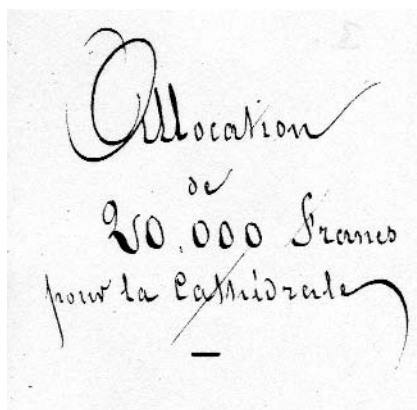 Allocation
de
20.000 Francs
pour la Cathédrale